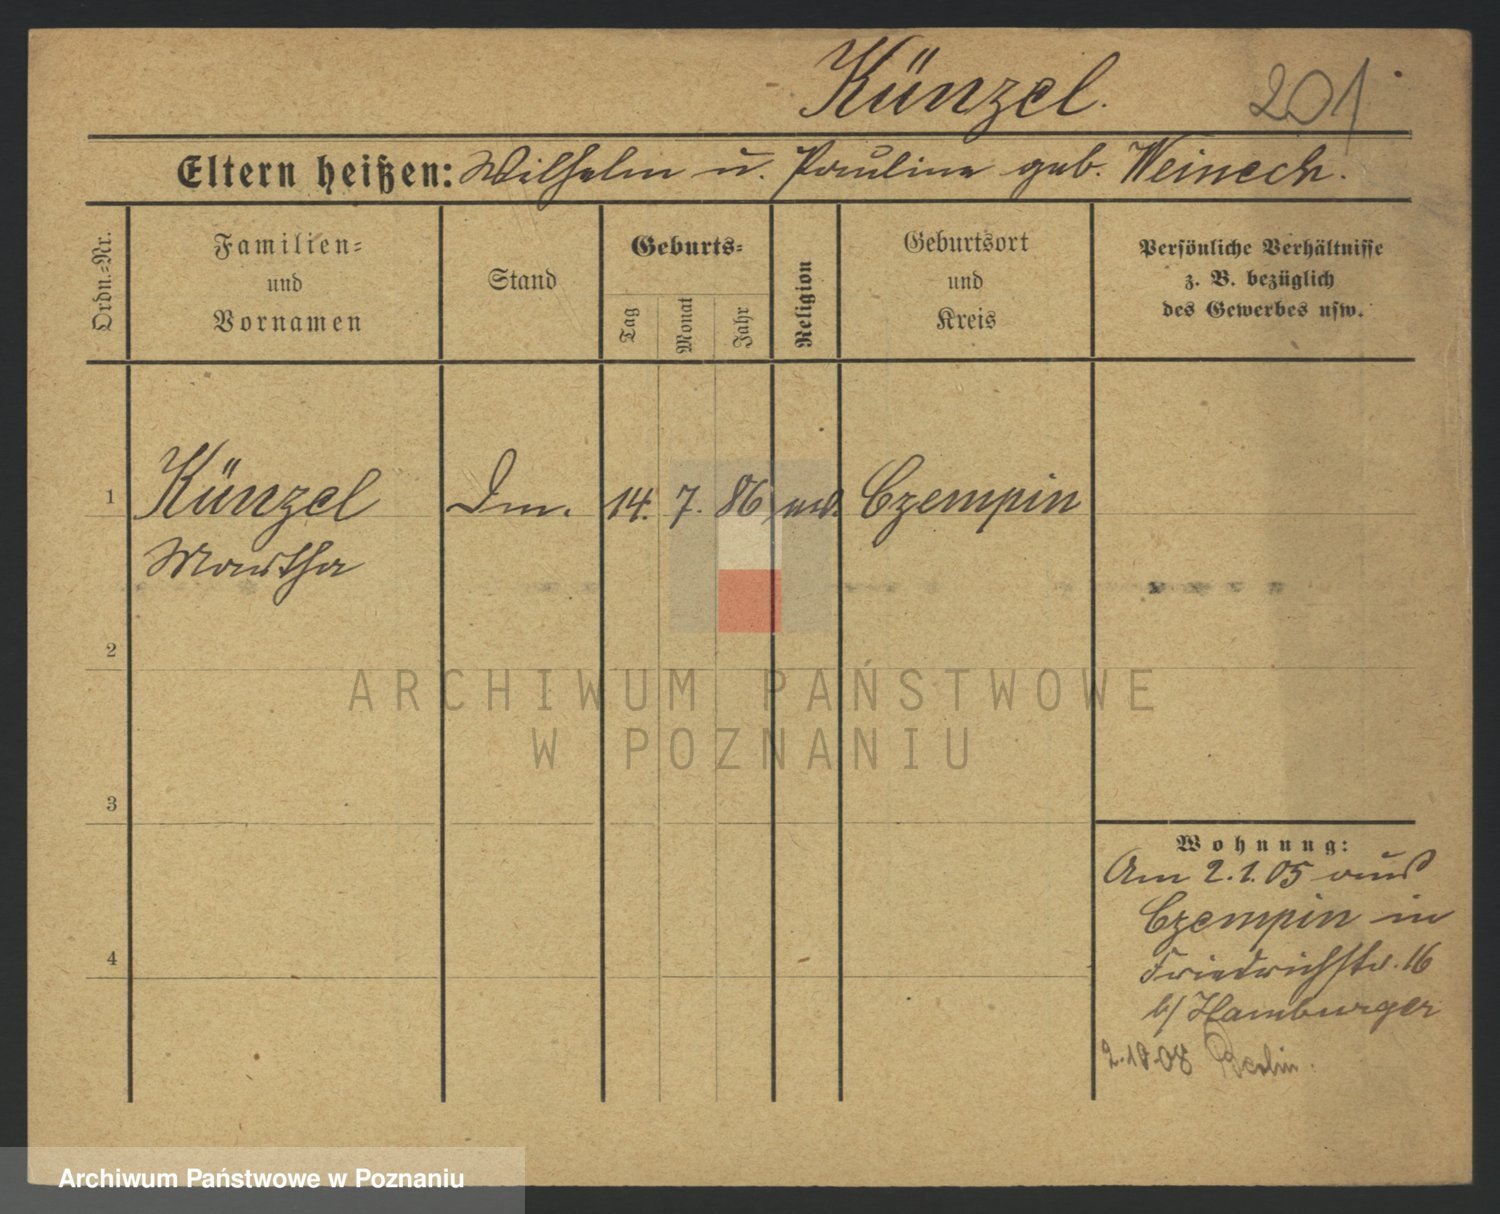 Künzel.
201
Eltern heißen: Wilhelm u. Pauline geb. Weinech.
Ordn.=Nr.
Familien=
und
Vornamen
Stand
Geburts=
Tag
Monat
Jahr
Religion
Geburtsort
und
Kreis
Persönliche Verhältnisse
z. B. bezüglich
des Gewerbes usw.
1 Künzel 14. 7. 86 Czempin
Martha
2
3
4
Wohnung:
Am 2.1.05 aus
Czempin in
Friedrichstr. 16
b/ Hamburger
Berlin.
ARCHIWUM PAŃSTWOWE
W POZNANIU
Archiwum Państwowe w Poznaniu